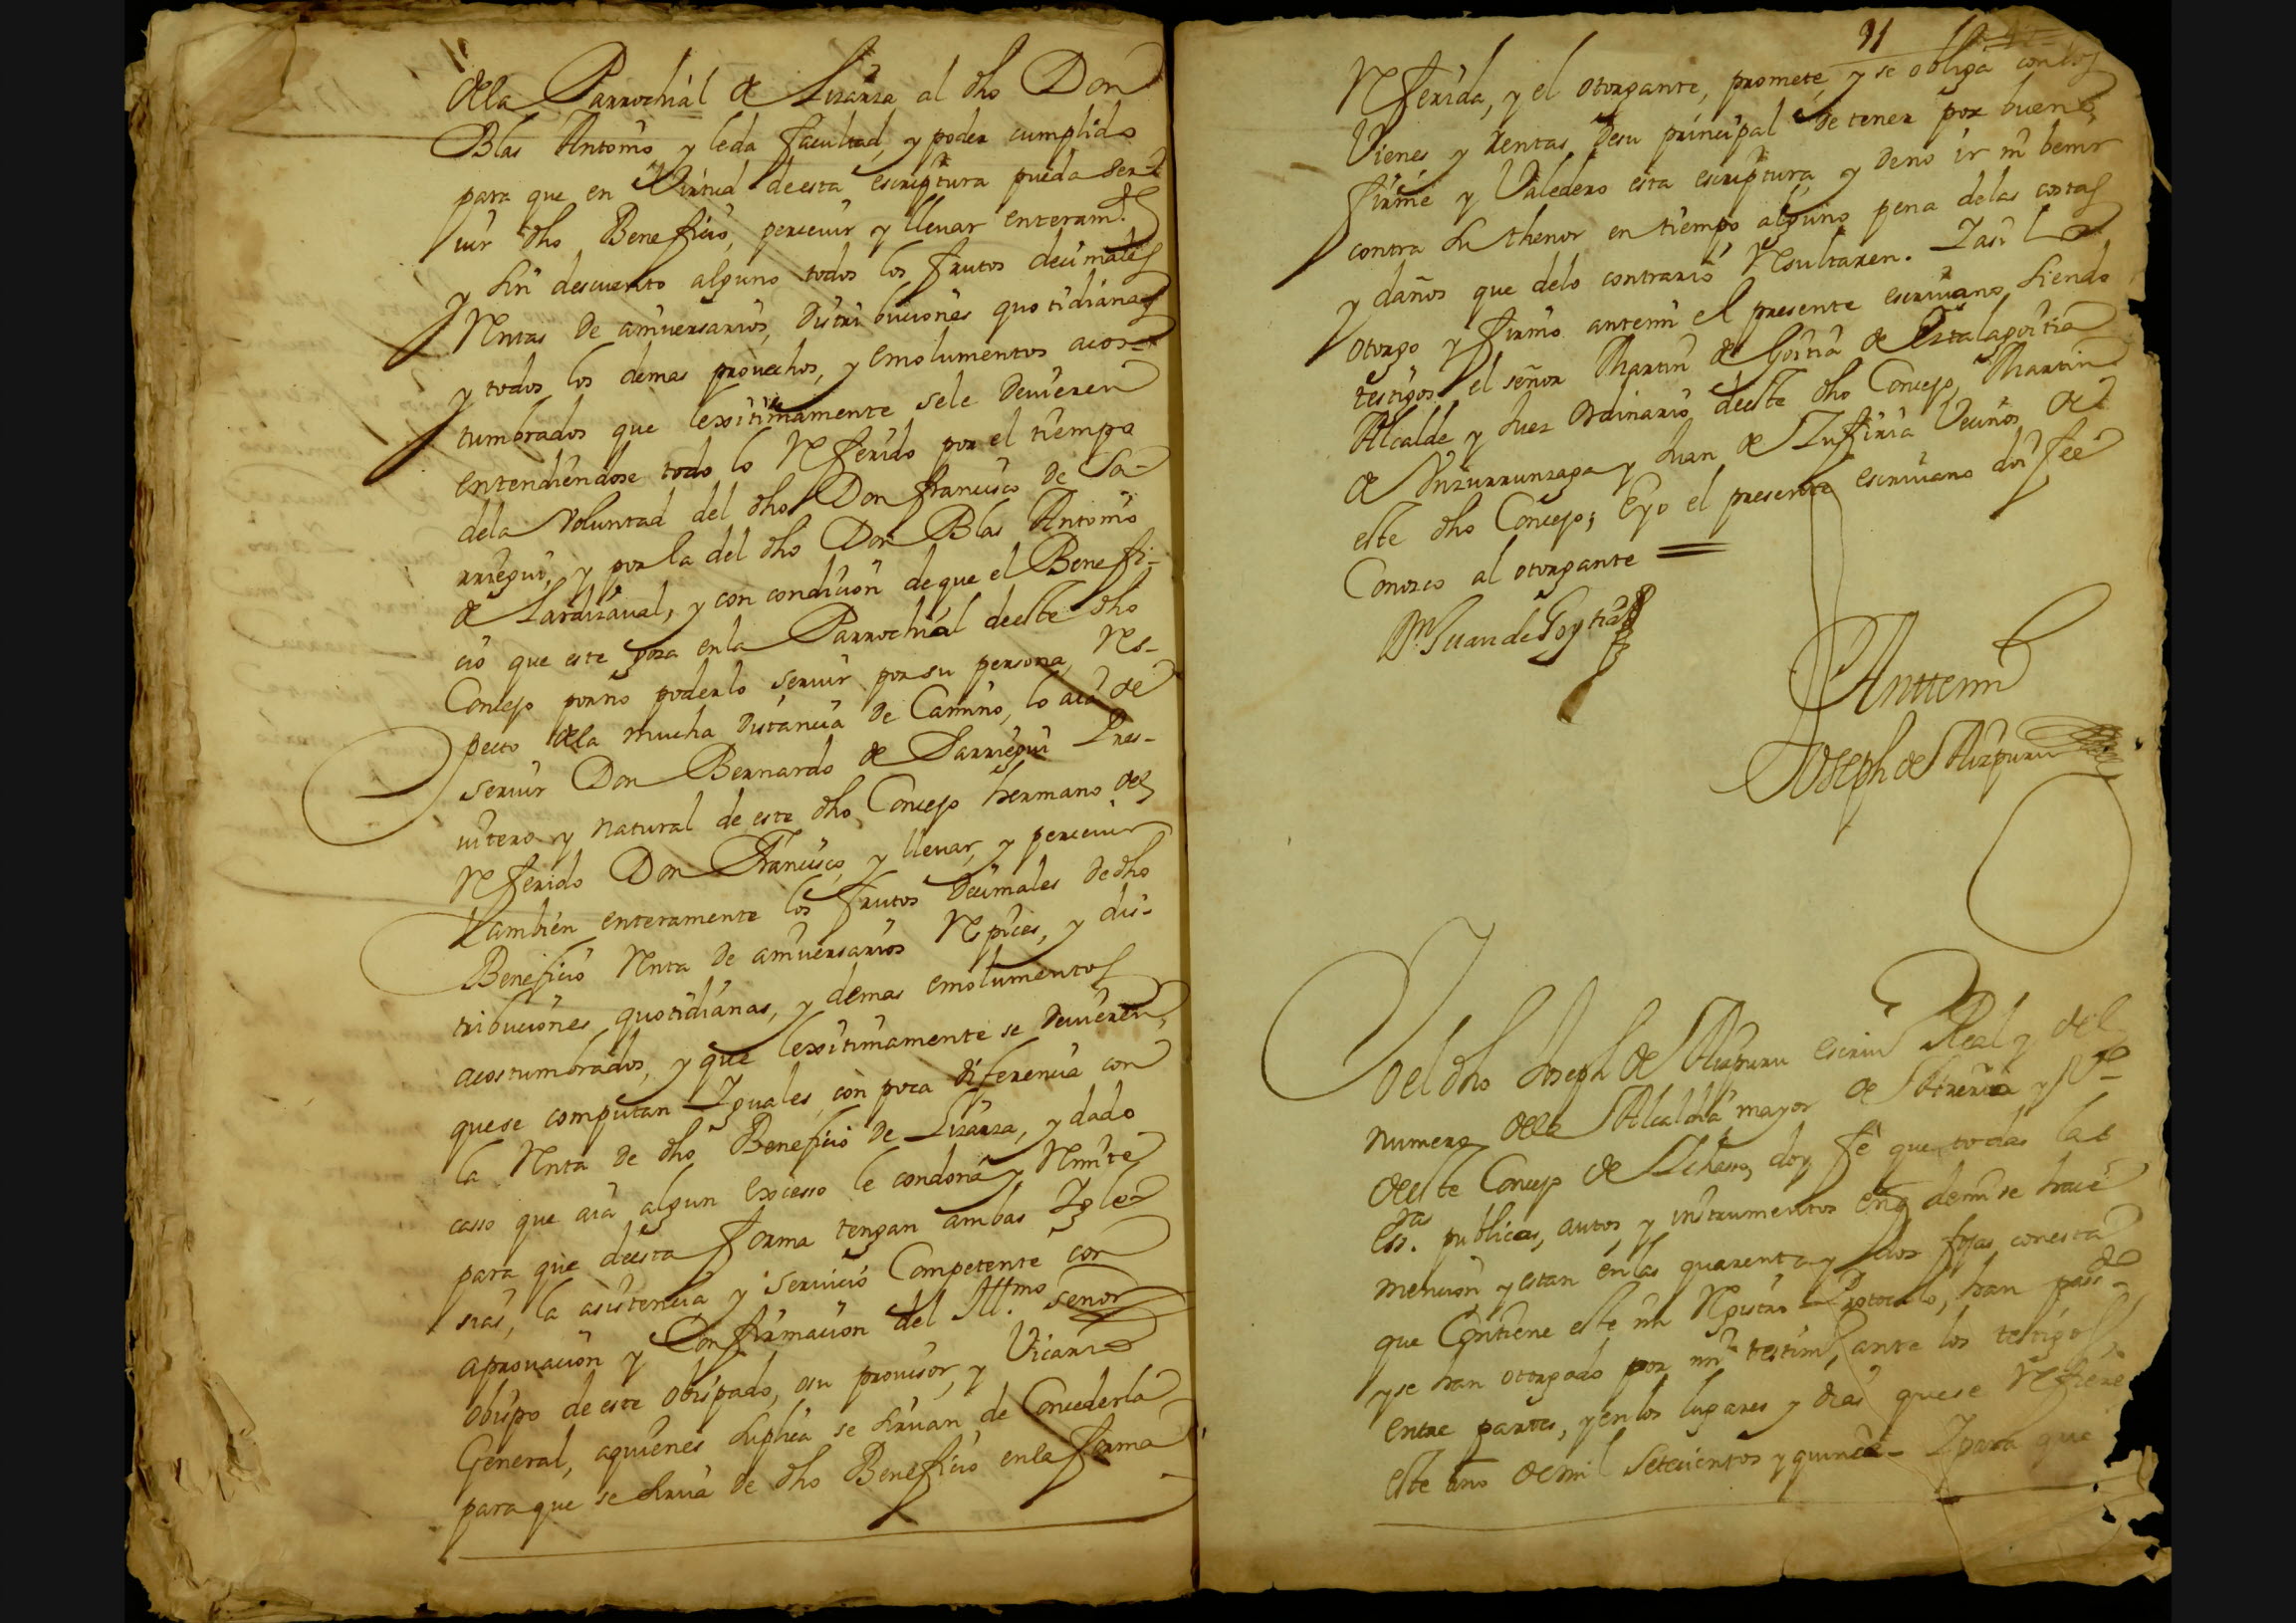 dela Parrochial de Lizarza al dho Don
Blas Antonio y leda facultad, y poder cumplido
para que en Virtud deesta escriptura pueda ser-
uir dho Beneficio, perceuir y lleuar enteramte
y sin descuento alguno todos los frutos decimales
Rentas de aniuersarios, distribuciones quotidianas
y todos los demas prouechos, y emolumentos acos-
tumbrados que lexitimamente sele deuieren
entendiendose todo lo Referido por el tiempo
dela Voluntad del dho Don francisco de Sa-
rriegui, y por la del dho Don Blas Antonio
de Lardizaual, y con condicion deque el Benefi-
cio que este goza enla Parrochial deeste dho
Concejo porno poderlo seruir por su persona, Res-
pecto dela mucha distancia de Camino, lo aia de
seruir Don Bernardo de Sarriegui Pres-
uitero y natural de este dho Concejo hermano del
Referido Don Francisco, y lleuar, y perceuir
tambien enteramente los frutos decimales de dho
Beneficio Renta de aniuersarios Repices, y dis-
tribuciones quotidianas, y demas emolumentos
acostumbrados, y que lexitimamente se deuieren,
quese computan Iguales con poca diferencia con
la Renta de dho Beneficio de Lizarza, y dado
casso que aia algun excesso le condona y Remite
para que deesta forma tengan ambas Igle-
sias, la asistencia y seruicio Competente con
aprouacion y Confirmacion del Illmo señor
Obispo de este obispado, osu prouisor, y Vicario
General, aquienes suplica se siruan de Concederla
para que se sirua de dho Beneficio enla forma
91
Referida, y el otorgante, promete, y se obliga con los
Vienes y rentas desu principal de tener por buena,
firme y Valedero esta escriptura, y deno ir ni benir
contra su thenor en tiempo alguno pena delas costas
y daños que delo contrario Resultaren. Iasi lo
otorgo y firmo antemi el presente escriuano, siendo
testigos el señor Martin de Goitia de Estalagoitia
Alcalde y Juez Ordinario deeste dho Concejo, Martin
de Inzurrunzaga y Juan de Zufiria Vecinos de
este dho Concejo; Eyo el presente escriuano doi fee
Conozco al otorgante
Dn Juan de Goytia
Anttemi
Joseph de Aizpuru
Yo el dho Joseph de Aizpuru escriuo Real y del
numero dela Alcaldia mayor de Areria y
deeste Concejo de doy fe que todas las
Essras. publicas, autos, y instrumentos enq demi se hace
mencion y estan enlas quarenta y dos fojas conesta
que Contiene este mi Registro Protocolo, han passdo
y se han otorgado por mi testim, ante los testigos,
entre partes, y enlos lugares y dias quese Refiere
este año de mil setecientos y quince- Ipara que